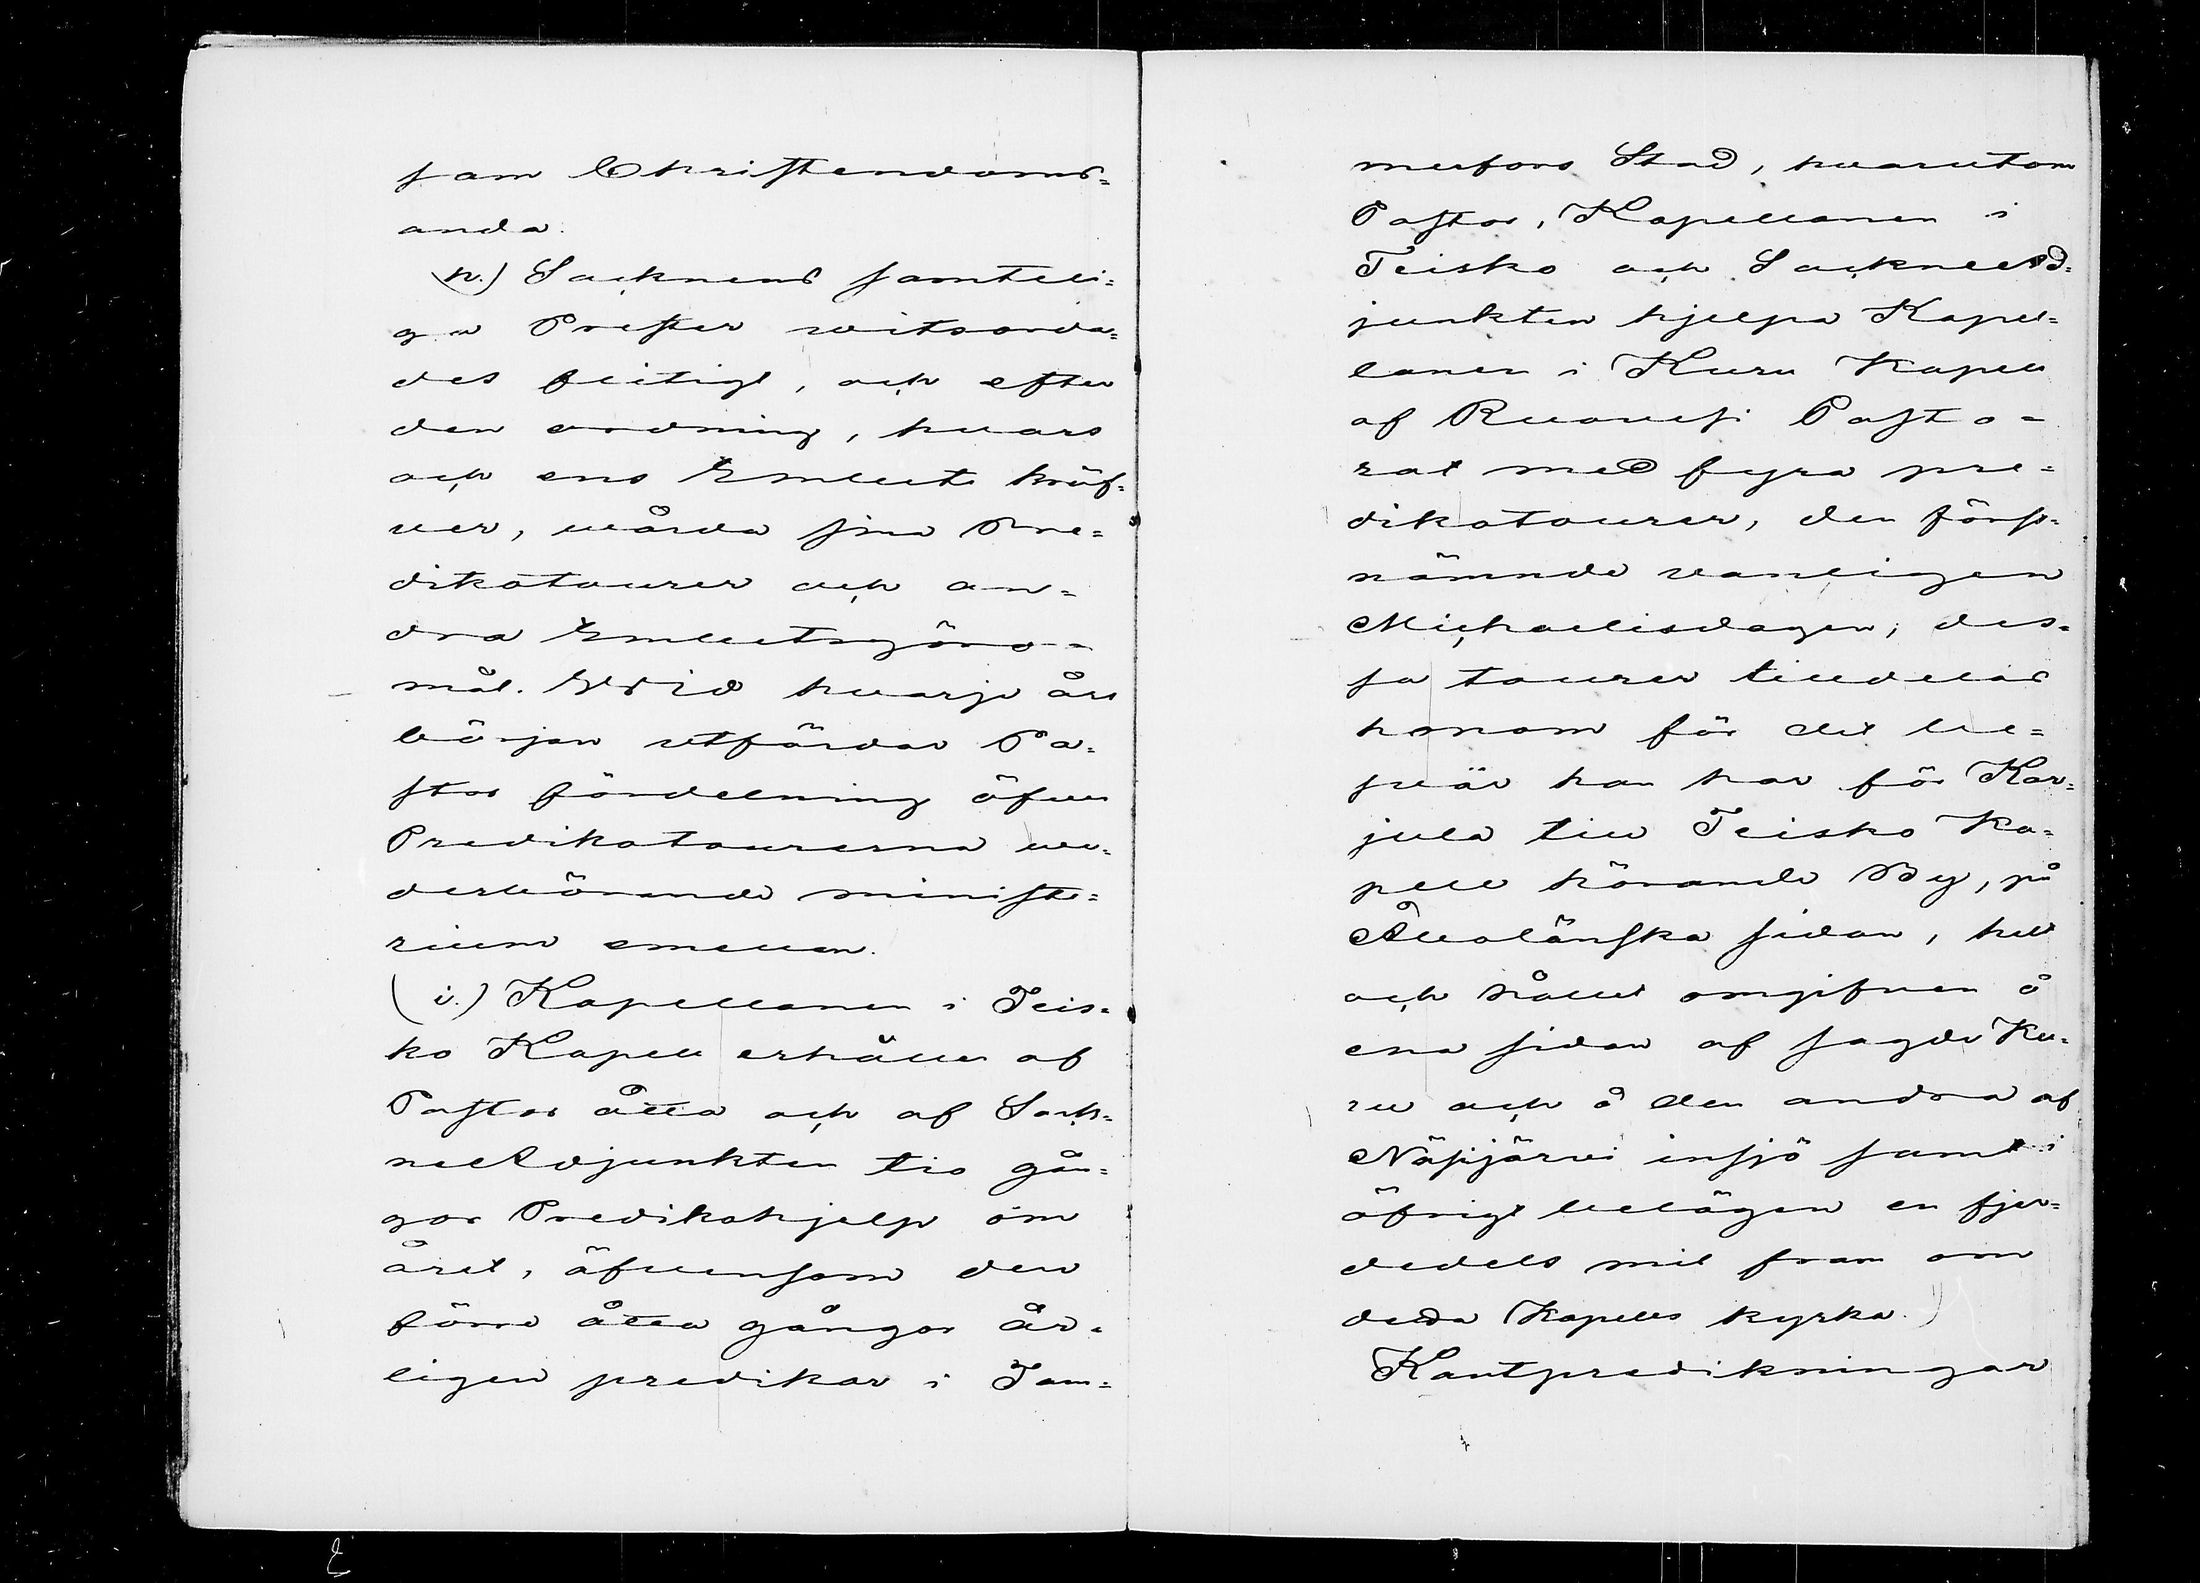 sam Christendoms-
anda.
h.) Socknens samteli-
ga Prester witsorda-
des flitigt, och efter
den ordning, hvars
och ens Embete kräf-
ver, vårda sina Pre-
dikotourer och an-
dra Embetsgöro-
mål. Wid hvarje års
början utfärdar Pa-
stor fördelning öfver
Predikotourerna ve-
derbörande ministe-
rium emellan.
(i.) Kapellanen i Teis-
ko Kapell erhåller af
Pastor åtta och af Sock-
neAdjunkten tio gån-
gor Predikohjelp om
året, äfvensom den
förre åtta gångor år-
ligen predikar i Tam-
merfors Stad, hvarutom
Pastor, Kapellanen i
Teisko och SockneAd-
junkten hjelpa Kapel-
lanen i Kuru Kapell
af Ruovesi Pasto-
rat med fyra pre-
dikotourer, den först-
nämnde vanligen
Michaelisdagen; des-
sa tourer tilldelas
honom för det be-
svär han har för Kar-
jula till Teisko Ka-
pell hörande By, på
Åbolänska sidan, helt
och hållet omgifven å
ena sidan af sagde Ku-
ru och å den andra af
Näsijärvi insjö samt i
öfrigt belägen en fjer-
dedels mil från om
delda Kapells kyrka.)
Kantpredikningar